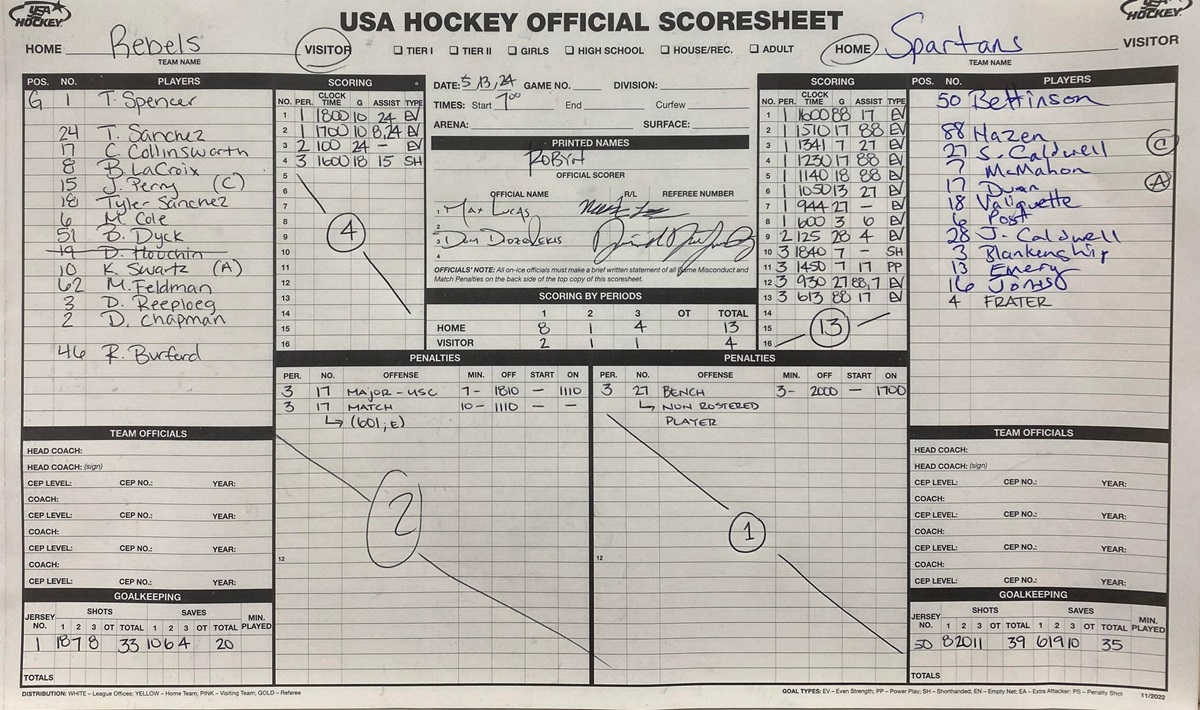 USA HOCKEY
USA HOCKEY OFFICIAL SCORESHEET
USA HOCKEY
HOME Rebels VISITOR ☐ TIER I ☐ TIER II ☐ GIRLS ☐ HIGH SCHOOL ☐ HOUSE/REC. ☐ ADULT HOME Spartans VISITOR
TEAM NAME TEAM NAME
POS. NO. PLAYERS
G 1 T. Spencer
24 T. Sanchez
17 C. Collinsworth
8 B. LaCroix
15 J. Perry (C)
18 Tyler Sanchez
6 M. Cole
51 B. Dyck
19 D. Houchin
10 K. Swartz (A)
62 M. Feldman
3 D. Reeploeg
2 D. Chapman
46 R. Burford
SCORING
NO. PER. CLOCK TIME G ASSIST TYPE
1 1 1800 10 24 EV
2 1 1700 10 8,24 EV
3 2 100 24 - EV
4 3 1600 18 15 SH
5
6
7
8
9
10
11
12
13
14
15
16
4
DATE: 5/13/24 GAME NO. DIVISION:
TIMES: Start 7:00 End Curfew
ARENA: SURFACE:
PRINTED NAMES
ROBYN
OFFICIAL SCORER
OFFICIAL NAME R/L REFEREE NUMBER
1 Max Lucas
2
3 Dom
4
OFFICIALS' NOTE: All on-ice officials must make a brief written statement of all Game Misconduct and
Match Penalties on the back side of the top copy of this scoresheet.
SCORING BY PERIODS
1 2 3 OT TOTAL
HOME 8 1 4 13
VISITOR 2 1 1 4
SCORING
NO. PER. CLOCK TIME G ASSIST TYPE
1 1 1600 88 17 EV
2 1 1510 17 88 EV
3 1 1341 7 27 EV
4 1 1230 17 88 EV
5 1 1140 18 88 EV
6 1 1050 13 27 EV
7 1 944 27 - EV
8 1 600 3 6 EV
9 2 125 28 4 EV
10 3 1840 7 - SH
11 3 1450 7 17 PP
12 3 930 27 88,7 EV
13 3 613 88 17 EV
14
15
16
13
POS. NO. PLAYERS
50 Bettinson
88 Hazen
27 S. Caldwell (C)
7 McMahon
17 Duan (A)
18 Valiquette
6 Post
28 J. Caldwell
3 Blankenship
13 Emery
16 Jones
4 FRATER
PENALTIES
PER. NO. OFFENSE MIN. OFF START ON
3 17 MAJOR - USC 7- 1810 - 1110
3 17 MATCH 10- 1110 - -
↳ (601, E)
2
12
PENALTIES
PER. NO. OFFENSE MIN. OFF START ON
3 27 BENCH 3- 2000 - 1700
↳ NON ROSTERED
PLAYER
1
12
TEAM OFFICIALS
HEAD COACH:
HEAD COACH: (sign)
CEP LEVEL: CEP NO.: YEAR:
COACH:
CEP LEVEL: CEP NO.: YEAR:
COACH:
CEP LEVEL: CEP NO.: YEAR:
COACH:
CEP LEVEL: CEP NO.: YEAR:
GOALKEEPING
JERSEY NO. SHOTS 1 2 3 OT TOTAL SAVES 1 2 3 OT TOTAL MIN. PLAYED
1 18 7 8 33 10 6 4 20
TOTALS
TEAM OFFICIALS
HEAD COACH:
HEAD COACH: (sign)
CEP LEVEL: CEP NO.: YEAR:
COACH:
CEP LEVEL: CEP NO.: YEAR:
COACH:
CEP LEVEL: CEP NO.: YEAR:
COACH:
CEP LEVEL: CEP NO.: YEAR:
GOALKEEPING
JERSEY NO. SHOTS 1 2 3 OT TOTAL SAVES 1 2 3 OT TOTAL MIN. PLAYED
50 8 20 11 39 6 19 10 35
TOTALS
DISTRIBUTION: WHITE – League Offices; YELLOW – Home Team; PINK – Visiting Team; GOLD – Referee
GOAL TYPES: EV – Even Strength; PP – Power Play; SH – Shorthanded; EN – Empty Net; EA – Extra Attacker; PS – Penalty Shot 11/2022